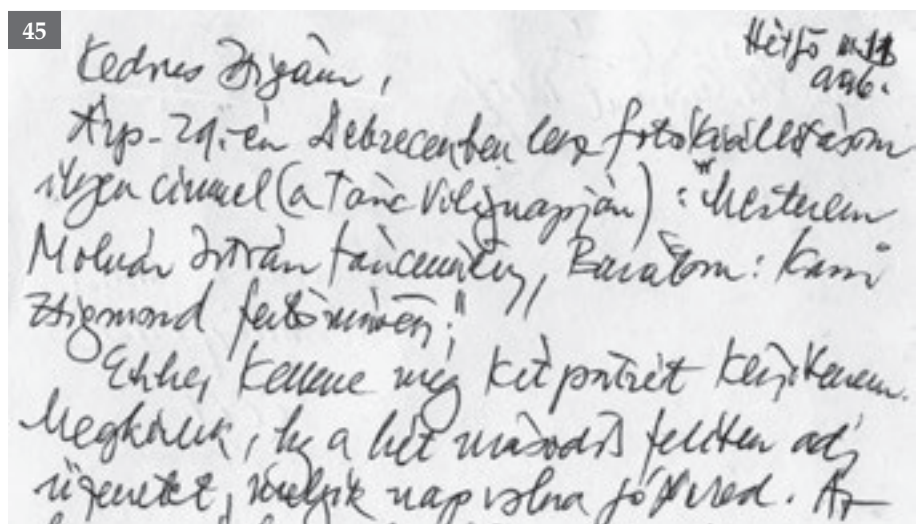 45
Hétfő III. 11
996.
Kedves Zsigám,
Ápr. 29.-én Debrecenben lesz fotókiállításom
ilyen címmel (a Tánc Világnapján): "Mesterem
Molnár István táncművész, Barátom: Kami
Zsigmond festőművész."
Ehhez kellene még két portrét készítenem.
Megkérlek, hogy a hét második felében adj
üzenetet, melyik nap volna jó Neked. Az